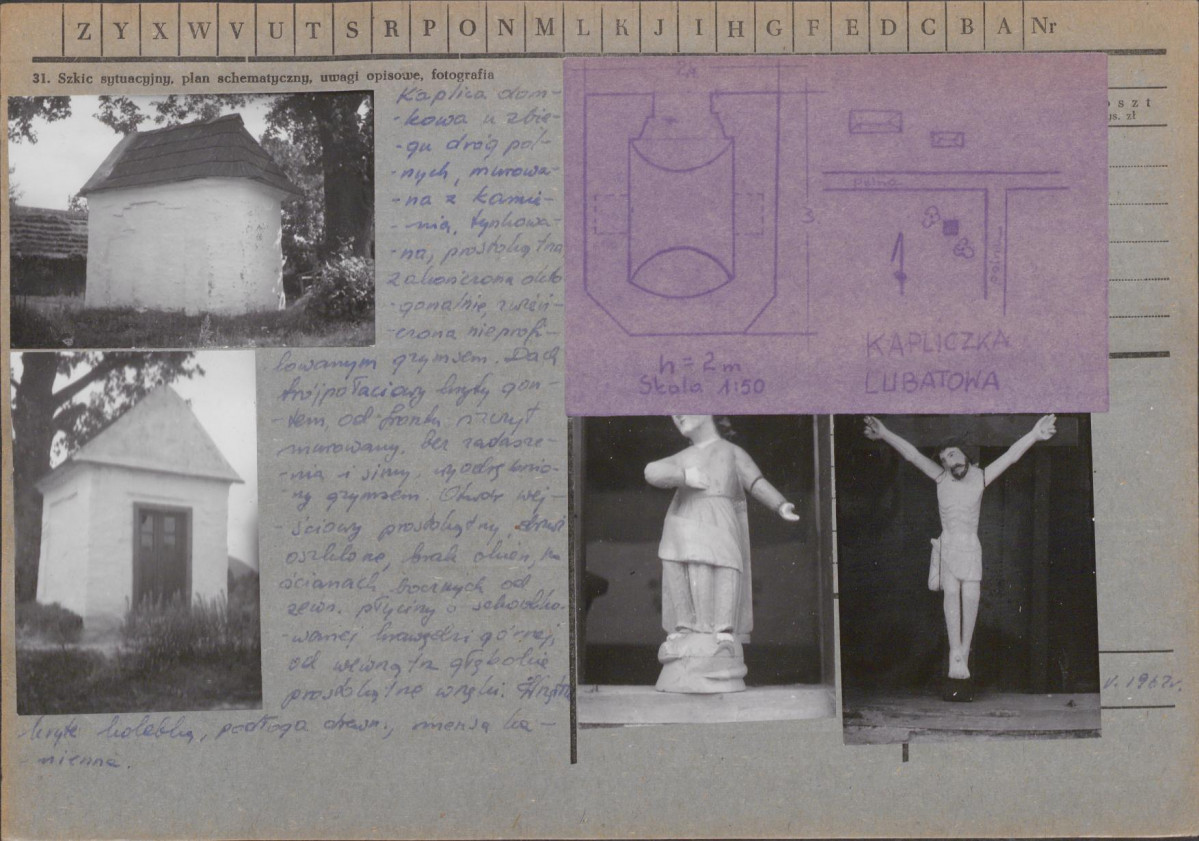 Z Y X W V U T S R P O N M L K J I H G F E D C B A Nr
31. Szkic sytuacyjny, plan schematyczny, uwagi opisowe, fotografia
Kaplica dom-
-kowa u zbie-
-gu dróg pol-
-nych, murowa-
-na z kamie-
-nia, tynkowa-
-na, prostokątna
zakończona okto
-gonalnie, zwień-
-czona nieprofi-
lowanym gzymsem. Dach
trójpołaciowy kryty gon-
-tem, od frontu szczyt
murowany, bez zadasze-
-nia i simy, wyodrębnio-
-ny gzymsem. Otwór wej-
-ściowy prostokątny, drzwi
oszklone, brak okien, na
ścianach bocznych od
zewn. płyciny o schodko-
-wanej krawędzi górnej,
od wewnątrz głębokie
prostokątne wnęki. Wnętrze
kryte kolebką, podłoga drewn., mensa ka-
-mienna.
3
polna
polna
h = 2 m
Skala 1:50
KAPLICZKA
LUBATOWA
oszt
ys. zł
V. 1967r.